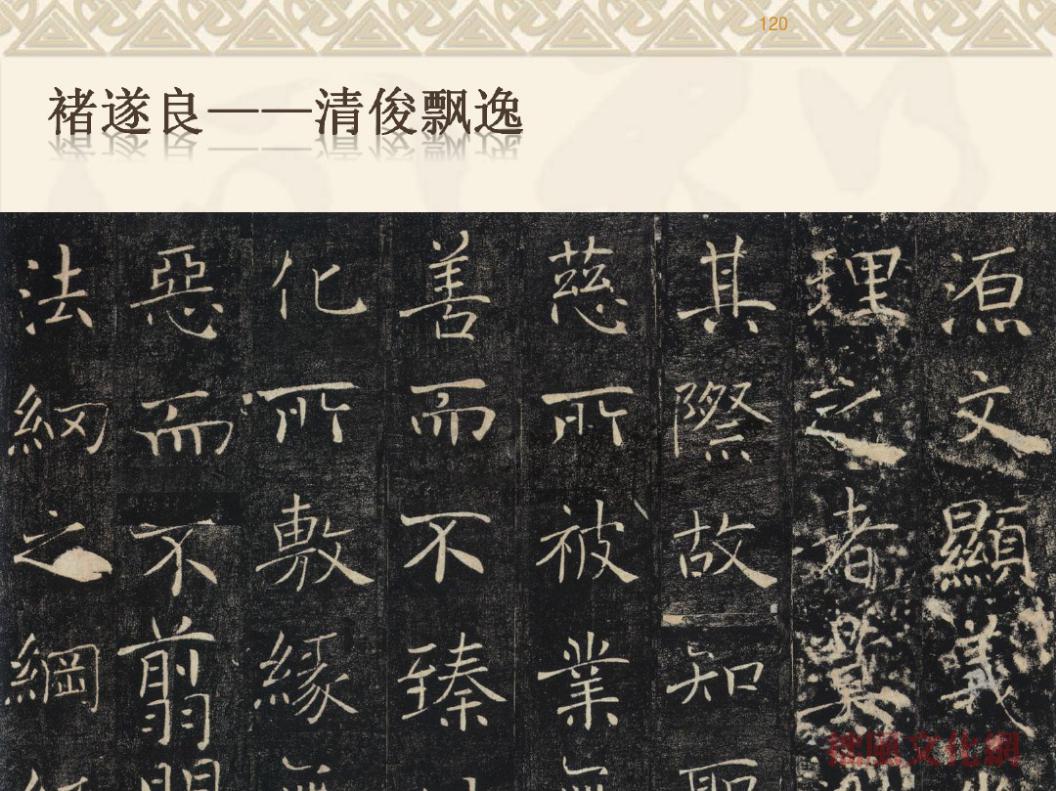 120
褚遂良——清俊飘逸
源文顯義
理之者莫
其際故知
慈所被業
善而不臻
化所敷緣
惡而不翦
法網之綱
文化網